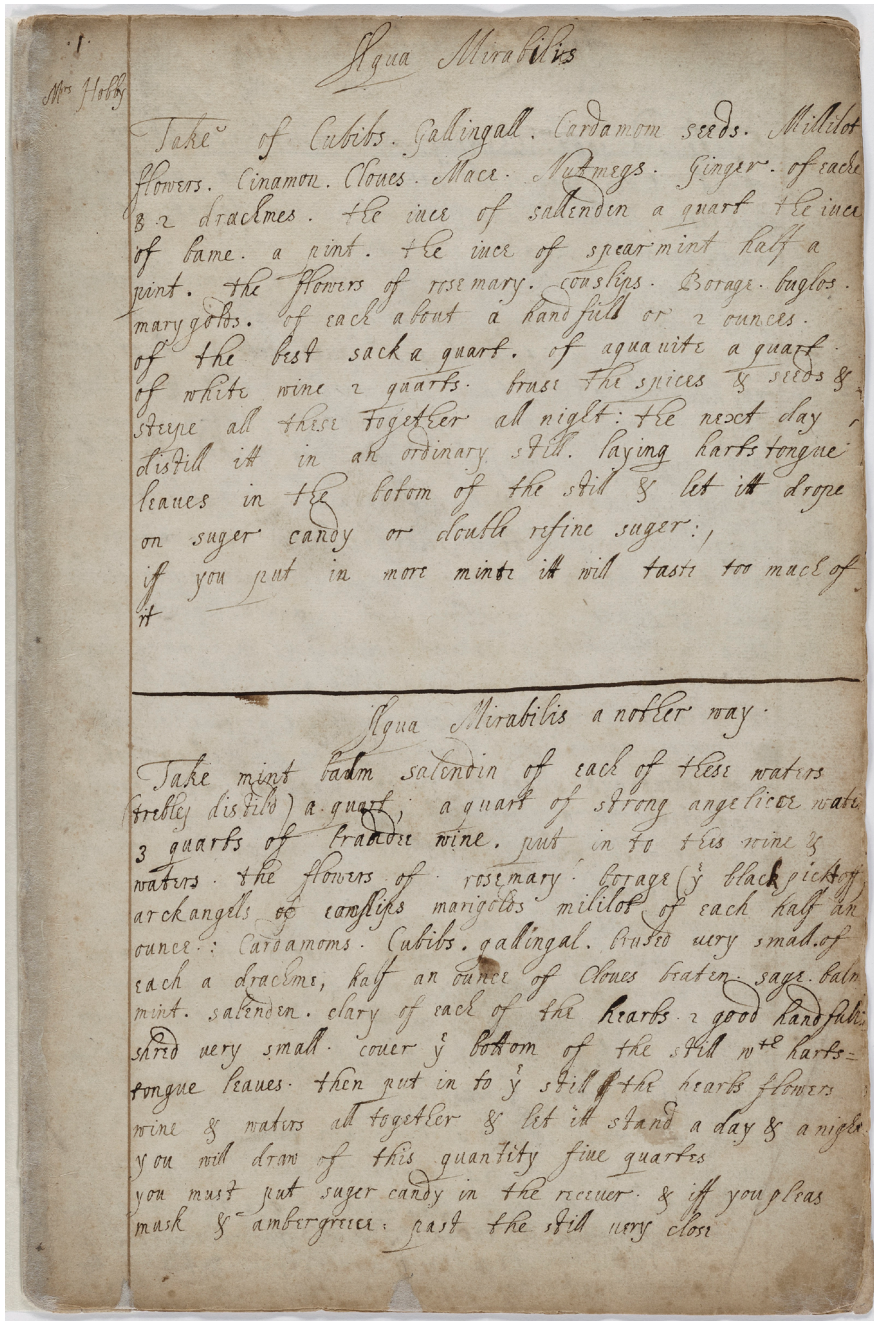 .1.
Aqua Mirabilis
Mrs Hobby
Take of Cubibs. Gallingall. Cardamom seeds. Millilot
flowers. Cinamon. Cloves. Mace. Nutmegs. Ginger. of eache
2 drachmes. the iuce of sallenden a quart the iuce
of bame. a pint. the iuce of spearmint half a
pint. the flowers of rosemary. couslips. Borage. buglos.
marygolds. of each about a handfull or 2 ounces.
of the best sack a quart. of aquauite a quart.
of white wine 2 quarts. bruse the spices & seeds &
steepe all these together all night: the next day
distill itt in an ordinary still. laying hartstongue
leaves in the botom of the still & let itt drope
on suger candy or double refine suger:,
iff you put in more minte itt will taste too much of
itt
Aqua Mirabilis another way.
Take mint balm salendin of each of these waters
(trebley distild) a quart; a quart of strong angelicee wate
3 quarts of brandee wine. put in to this wine &
waters. the flowers of rosemary. borage (ye black pickt off)
archangels couslips marigolds mililot of each half an
ounce: Cardamoms. Cubibs. gallingal. brused very small. of
each a drachme, half an ounce of Cloves beaten. sage. balm
mint. salenden. clary of each of the hearbs 2 good handfulls
shred very small. cover ye bottom of the still wth harts=
tongue leaves. then put in to ye still the hearbs flowers
wine & waters all together & let itt stand a day & a night
you will draw of this quantity five quartes
you must put suger candy in the recever. & iff you pleas
musk & ambergreece: past the still very close